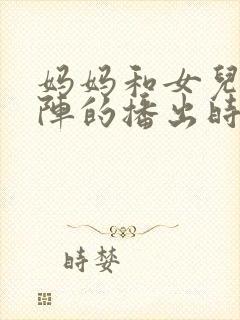 妈妈和女兒
陣的播出時
時婪